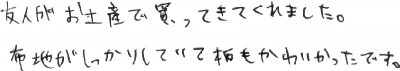 友人がお土産で買ってきてくれました。
布地がしっかりしていて柄もかわいかったです。